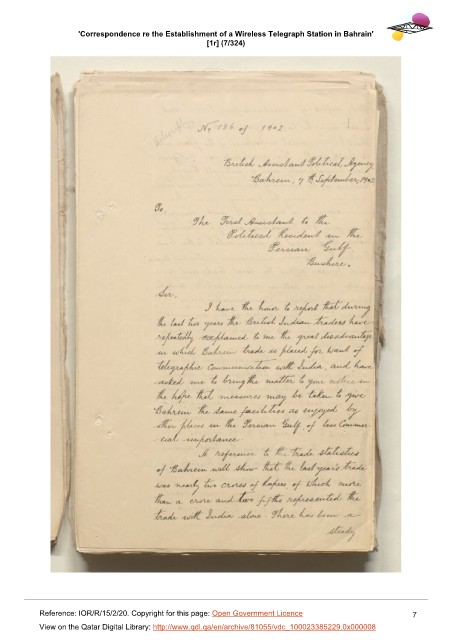 'Correspondence re the Establishment of a Wireless Telegraph Station in Bahrain'
[1r] (7/324)
No 136 of 1902
1
British Assistant Political Agency
Bahrein, 7th September, 1902
To,
The First Assistant to the
Political Resident in the
Persian Gulf
Bushire.
Sir,
I have the honor to report that during
the last two years the British Indian traders have
repeatedly explained to me the great disadvantage
in which Bahrein trade is placed for want of
telegraphic communication with India, and have
asked me to bring the matter to your notice in
the hope that measures may be taken to give
Bahrein the same facilities as enjoyed by
other places in the Persian Gulf, of less Commer
cial importance.
A reference to the trade statistics
of Bahrein will show that the last year's trade
was nearly two crores of rupees of which more
than a crore and two fifths represented the
trade with India alone. There has been a
steady
Reference: IOR/R/15/2/20. Copyright for this page: Open Government Licence
7
View on the Qatar Digital Library: http://www.qdl.qa/en/archive/81055/vdc_100023385229.0x000008